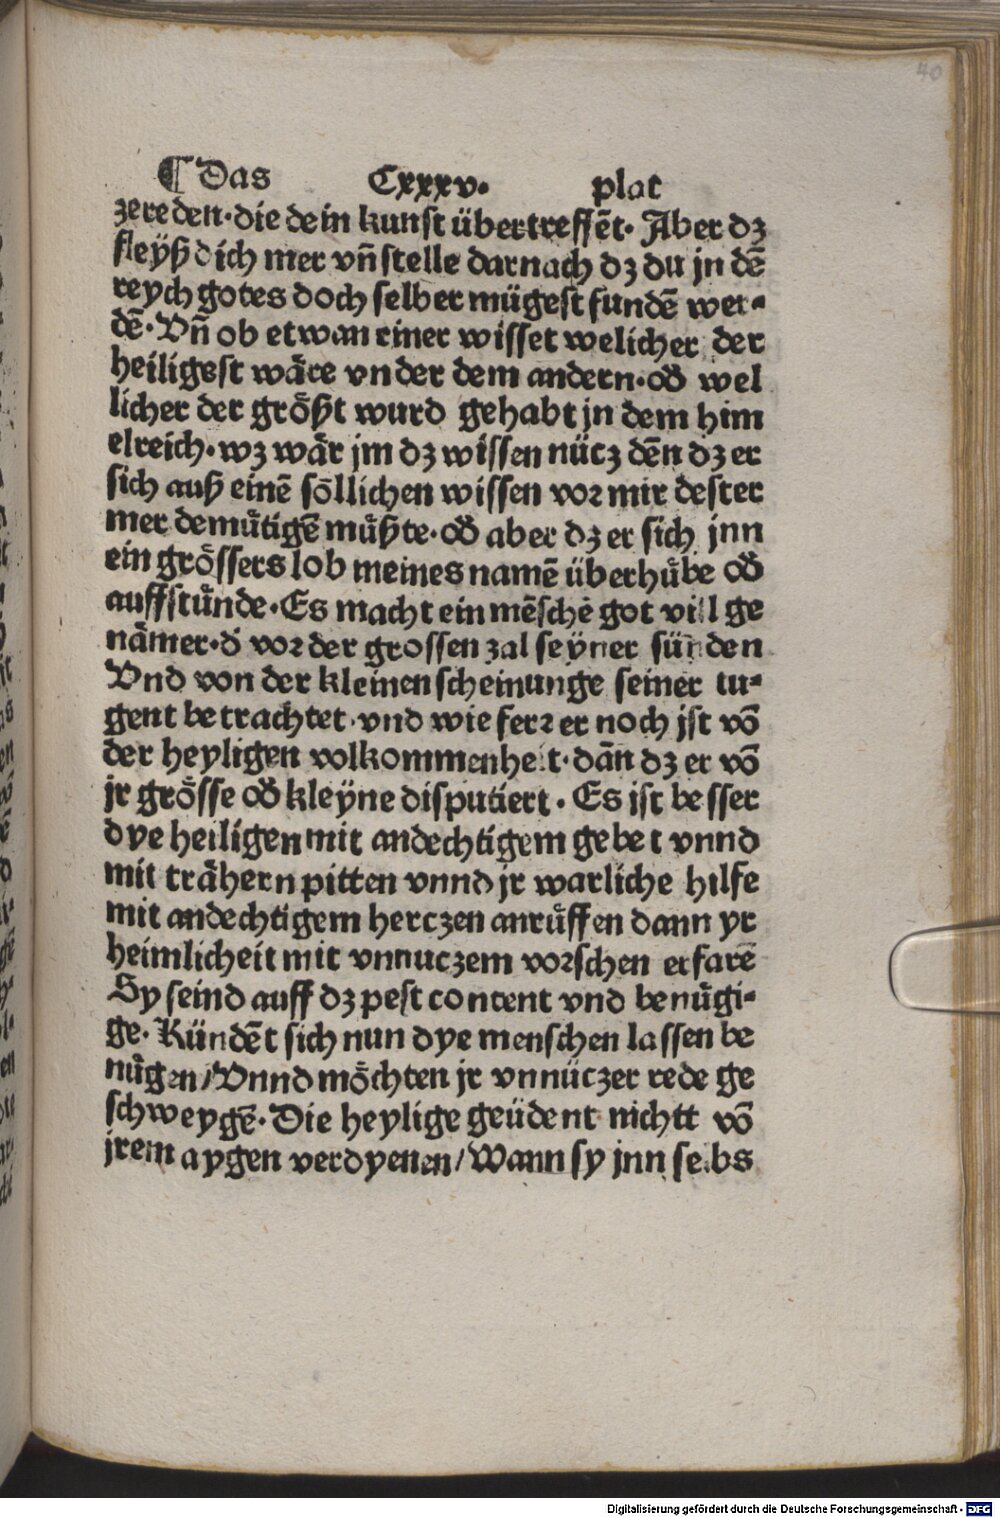 40
¶ Das Cxxxv. plat
zereden·die dein kunst übertreffēt· Aber dz
fleyß dich mer vn̄ stelle darnach dz du jn dē
reych gotes doch selber mügest fundē wer⸗
dē·Vn̄ ob etwan einer wisset welicher der
heiligest wäre vnder dem andern·od̕ wel
licher der größt wurd gehabt jn dem him
elreich·wz wär jm dz wissen nücz dēn dz er
sich auß einē söllichen wissen vor mir dester
mer demütigē müßte·od̕ aber dz er sich jnn
ein grössers lob meines namē überhübe od̕
auffstünde·Es macht ein mēschē got vill ge
nämer·d̕ vor der grossen zal seyner sünden
Vnd von der kleinen scheinunge seiner tu⸗
gent betrachtet·vnd wie ferr er noch jst vō
der heyligen volkommenheit·dān dz er vō
jr grösse od̕ kleyne disputiert· Es ist besser
dye heiligen mit andechtigem gebet vnnd
mit trähern pitten vnnd jr warliche hilfe
mit andechtigem herczen anrüffen dann yr
heimlicheit mit vnnuczem vorschen erfarē
Sy seind auff dz pest content vnd benügi⸗
ge· Kündēt sich nun dye menschen lassen be
nügen/Vnnd möchten jr vnnüczer rede ge
schweygē·Die heylige geüdent nichtt vō
jrem aygen verdyenen/Wann sy jnn selbs
Digitalisierung gefördert durch die Deutsche Forschungsgemeinschaft - DFG